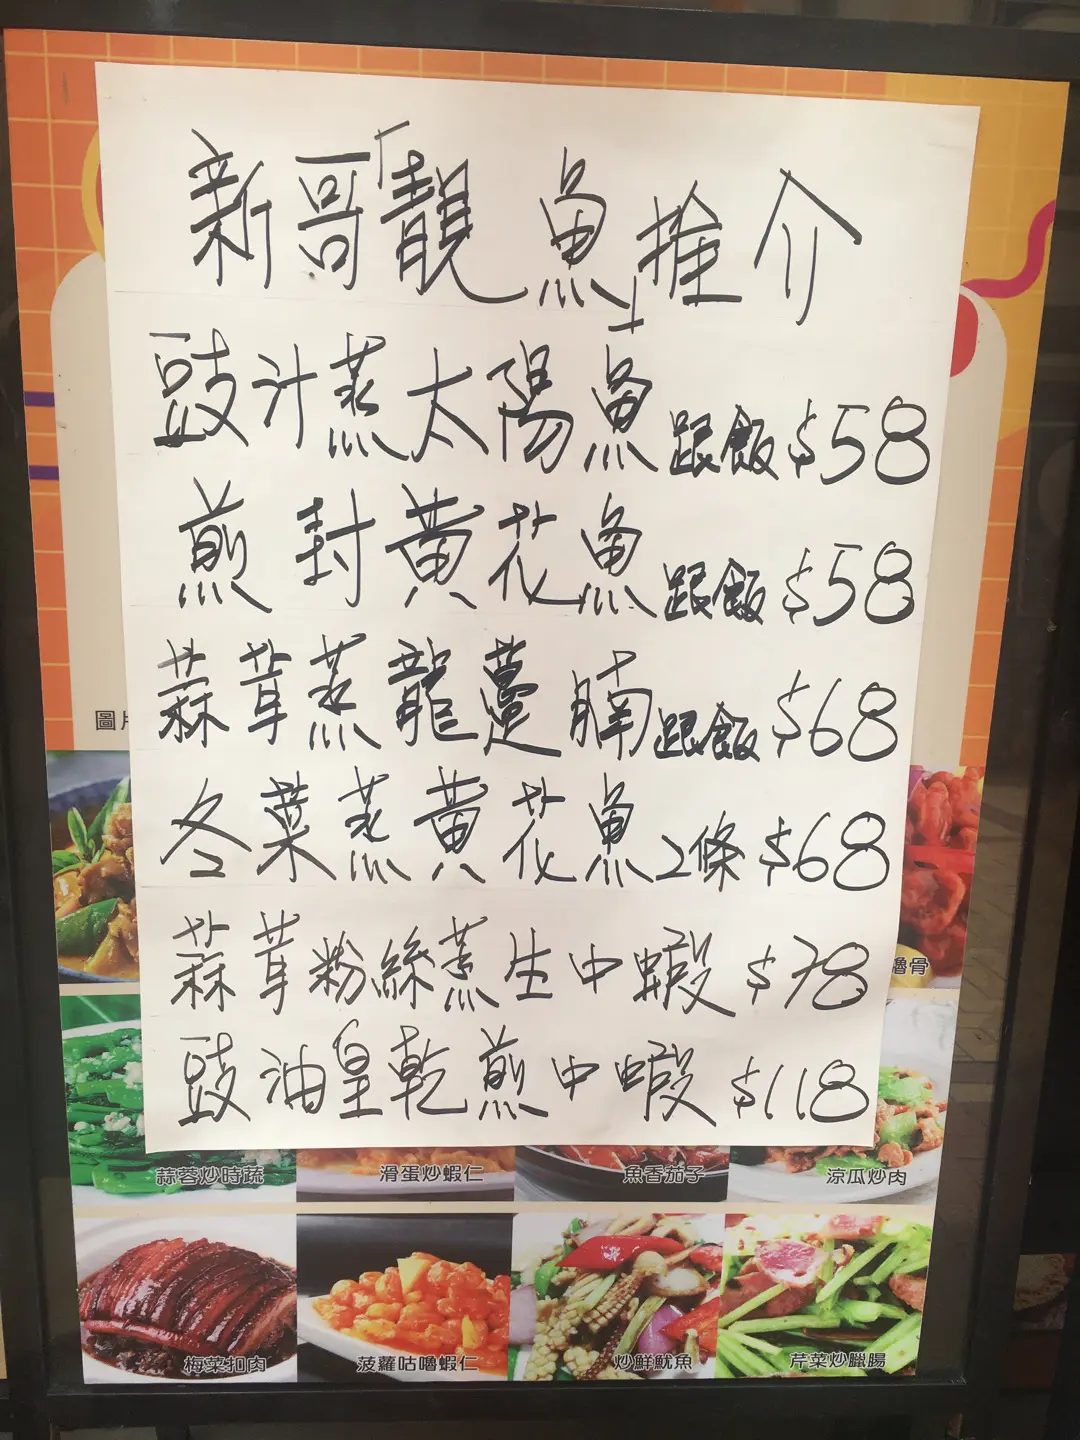 新哥「靚魚」推介
豉汁蒸太陽魚跟飯$58
煎封黃花魚跟飯$58
蒜茸蒸龍躉腩跟飯$68
冬菜蒸黃花魚2條$68
蒜茸粉絲蒸生中蝦$78
豉油皇乾煎中蝦$118
圖片
嚕骨
蒜蓉炒時蔬
滑蛋炒蝦仁
魚香茄子
涼瓜炒肉
梅菜扣肉
菠蘿咕嚕蝦仁
炒鮮魷魚
芹菜炒臘腸